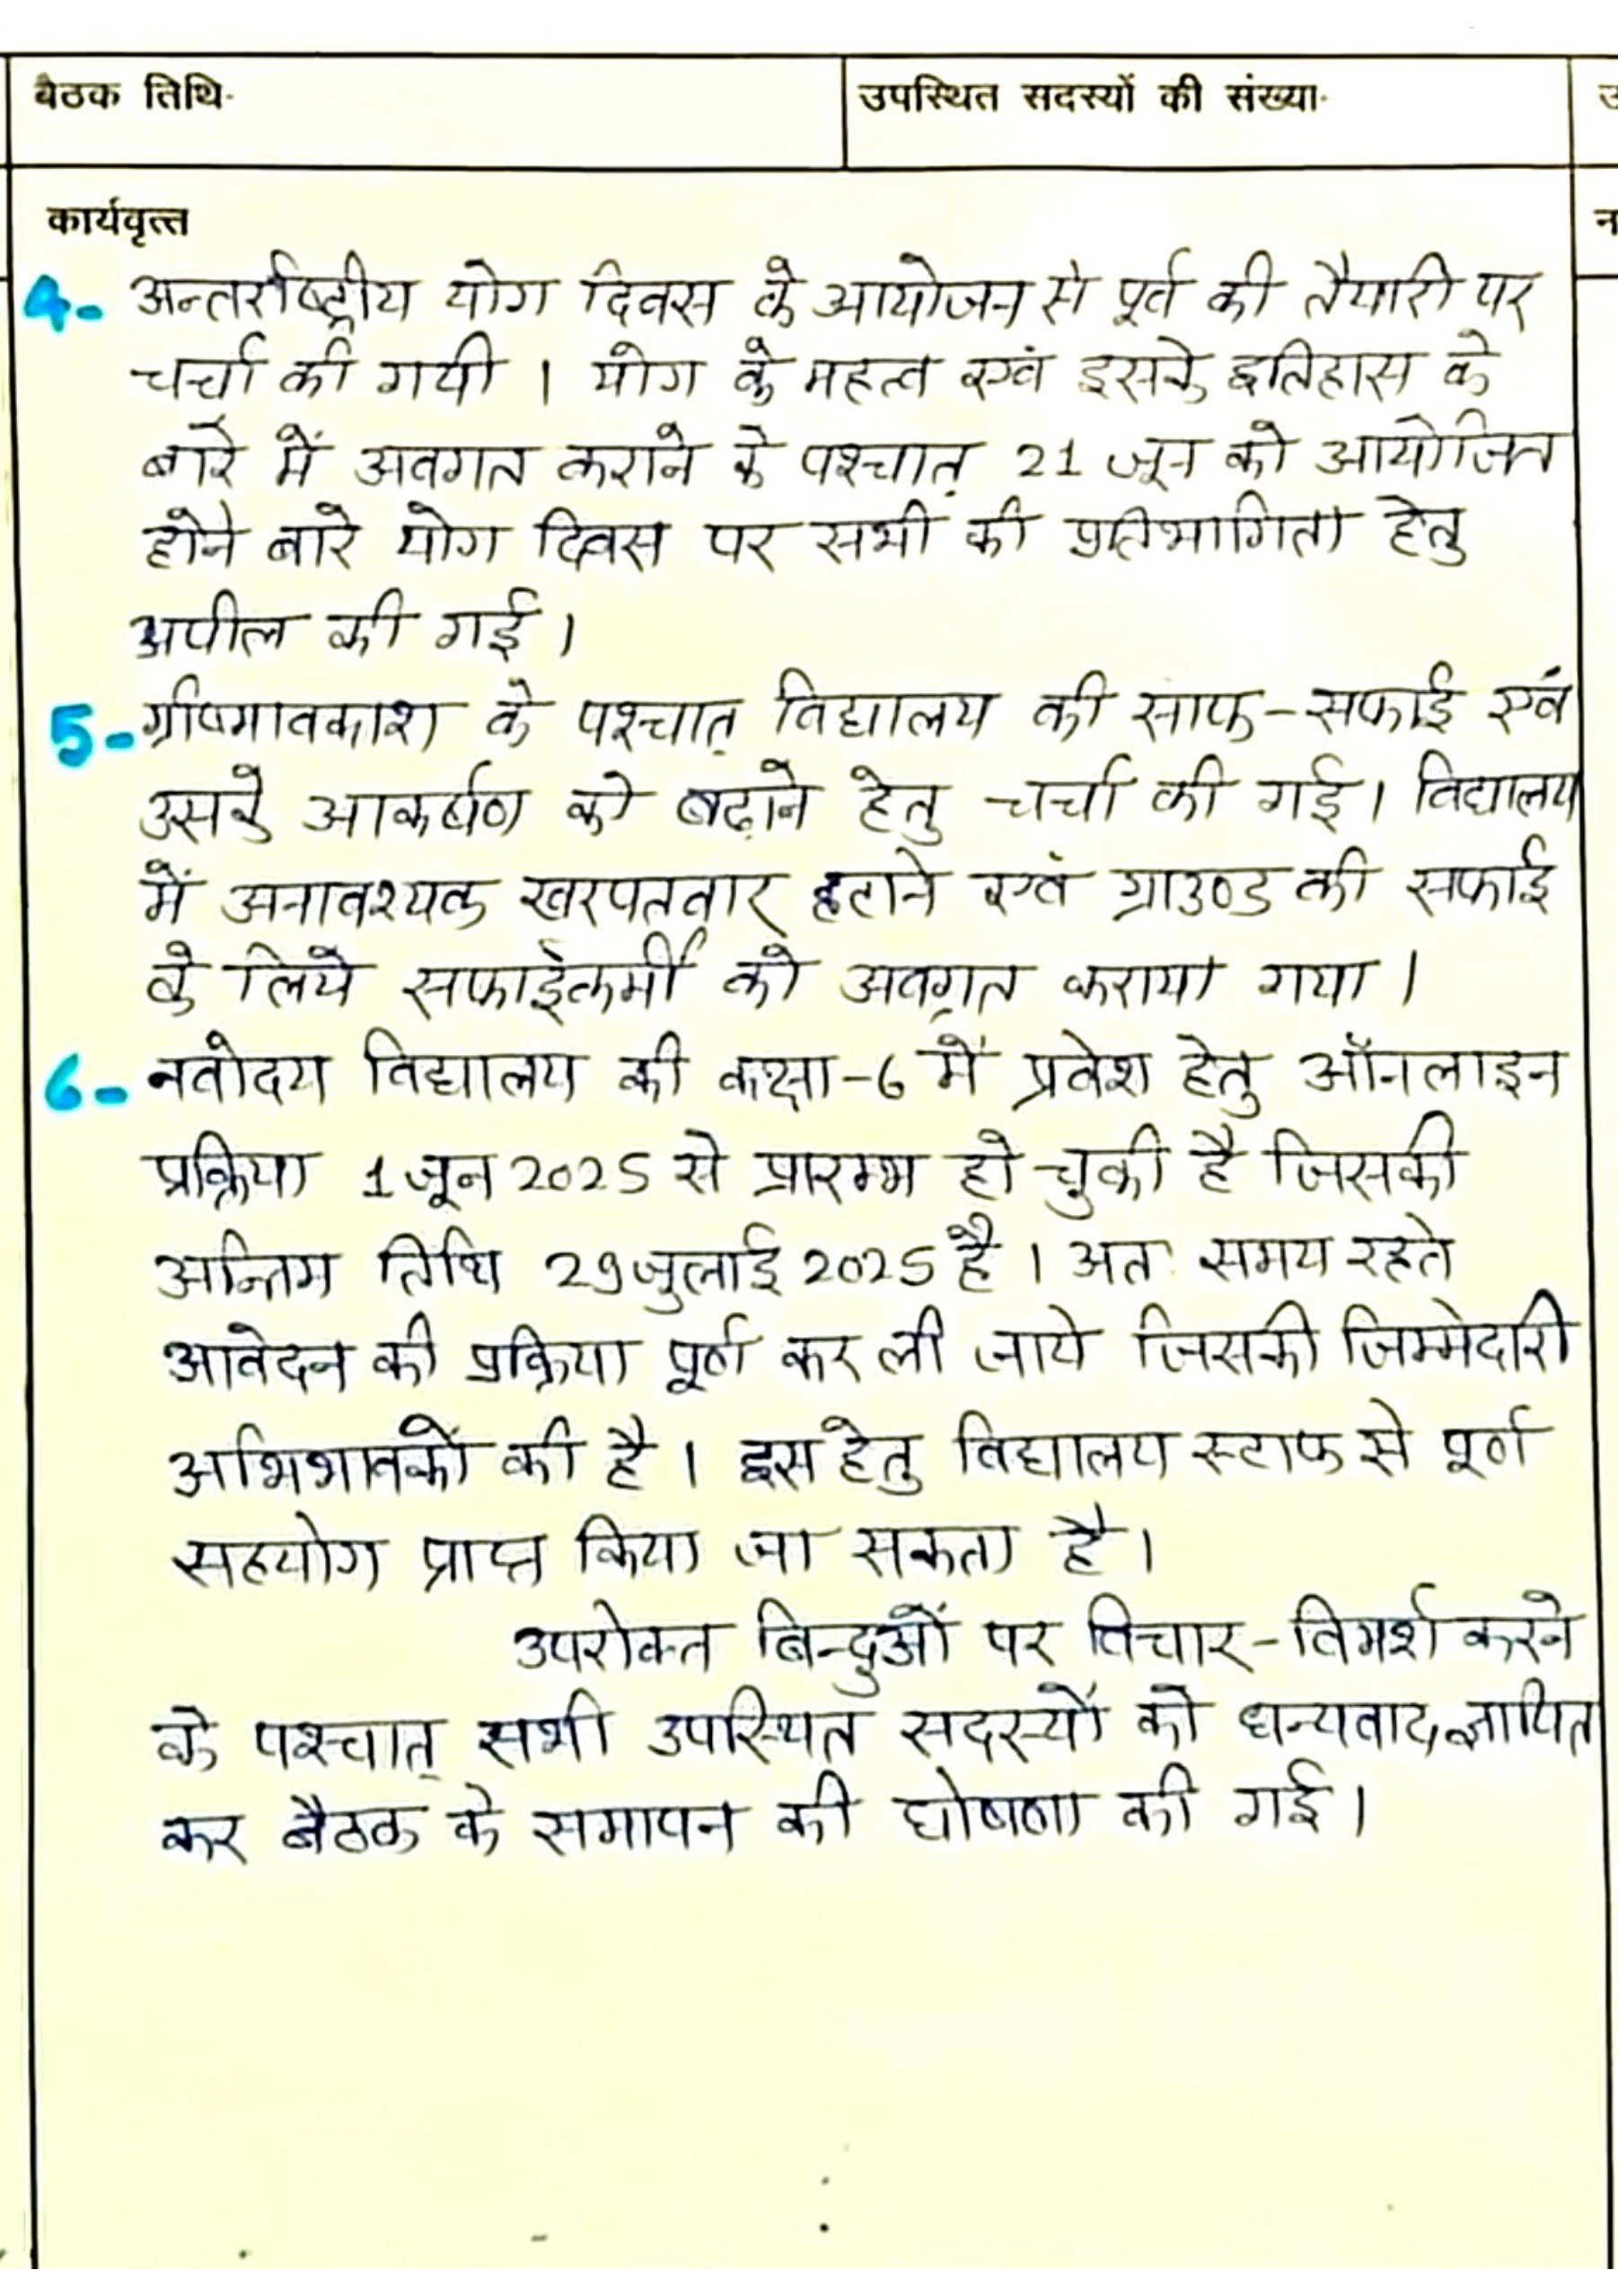 बैठक तिथि-
उपस्थित सदस्यों की संख्या-
कार्यवृत्त
4- अन्तर्राष्ट्रीय योग दिवस के आयोजन से पूर्व की तैयारी पर
चर्चा की गयी । योग के महत्व एवं इसके इतिहास के
बारे में अवगत कराने के पश्चात् 21 जून को आयोजित
होने बारे योग दिवस पर सभी की प्रतिभागिता हेतु
अपील की गई ।
5- ग्रीष्मावकाश के पश्चात् विद्यालय की साफ-सफाई एवं
उसके आकर्षण को बढ़ाने हेतु चर्चा की गई । विद्यालय
में अनावश्यक खरपतवार हटाने एवं ग्राउण्ड की सफाई
के लिये सफाईकर्मी को अवगत कराया गया ।
6- नवोदय विद्यालय की कक्षा-6 में प्रवेश हेतु ऑनलाइन
प्रक्रिया 1 जून 2025 से प्रारम्भ हो चुकी है जिसकी
अन्तिम तिथि 29 जुलाई 2025 है । अतः समय रहते
आवेदन की प्रक्रिया पूर्ण कर ली जाये जिसकी जिम्मेदारी
अभिभावकों की है । इस हेतु विद्यालय स्टाफ से पूर्ण
सहयोग प्राप्त किया जा सकता है ।
उपरोक्त बिन्दुओं पर विचार-विमर्श करने
के पश्चात् सभी उपस्थित सदस्यों को धन्यवाद ज्ञापित
कर बैठक के समापन की घोषणा की गई ।